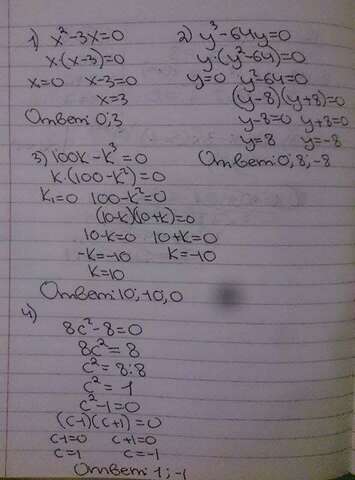 1) x²-3x=0
x·(x-3)=0
x=0 x-3=0
x=3
Ответ: 0; 3
2) y³-64y=0
y·(y²-64)=0
y=0 y²-64=0
(y-8)(y+8)=0
y-8=0 y+8=0
y=8 y=-8
Ответ: 0, 8, -8
3) 100k-k³=0
k·(100-k²)=0
k₁=0 100-k²=0
(10-k)(10+k)=0
10-k=0 10+k=0
-k=-10 k=-10
k=10
Ответ: 10, -10, 0
4)
8c²-8=0
8c²=8
c²=8:8
c²=1
c²-1=0
(c-1)(c+1)=0
c-1=0 c+1=0
c=1 c=-1
Ответ: 1; -1